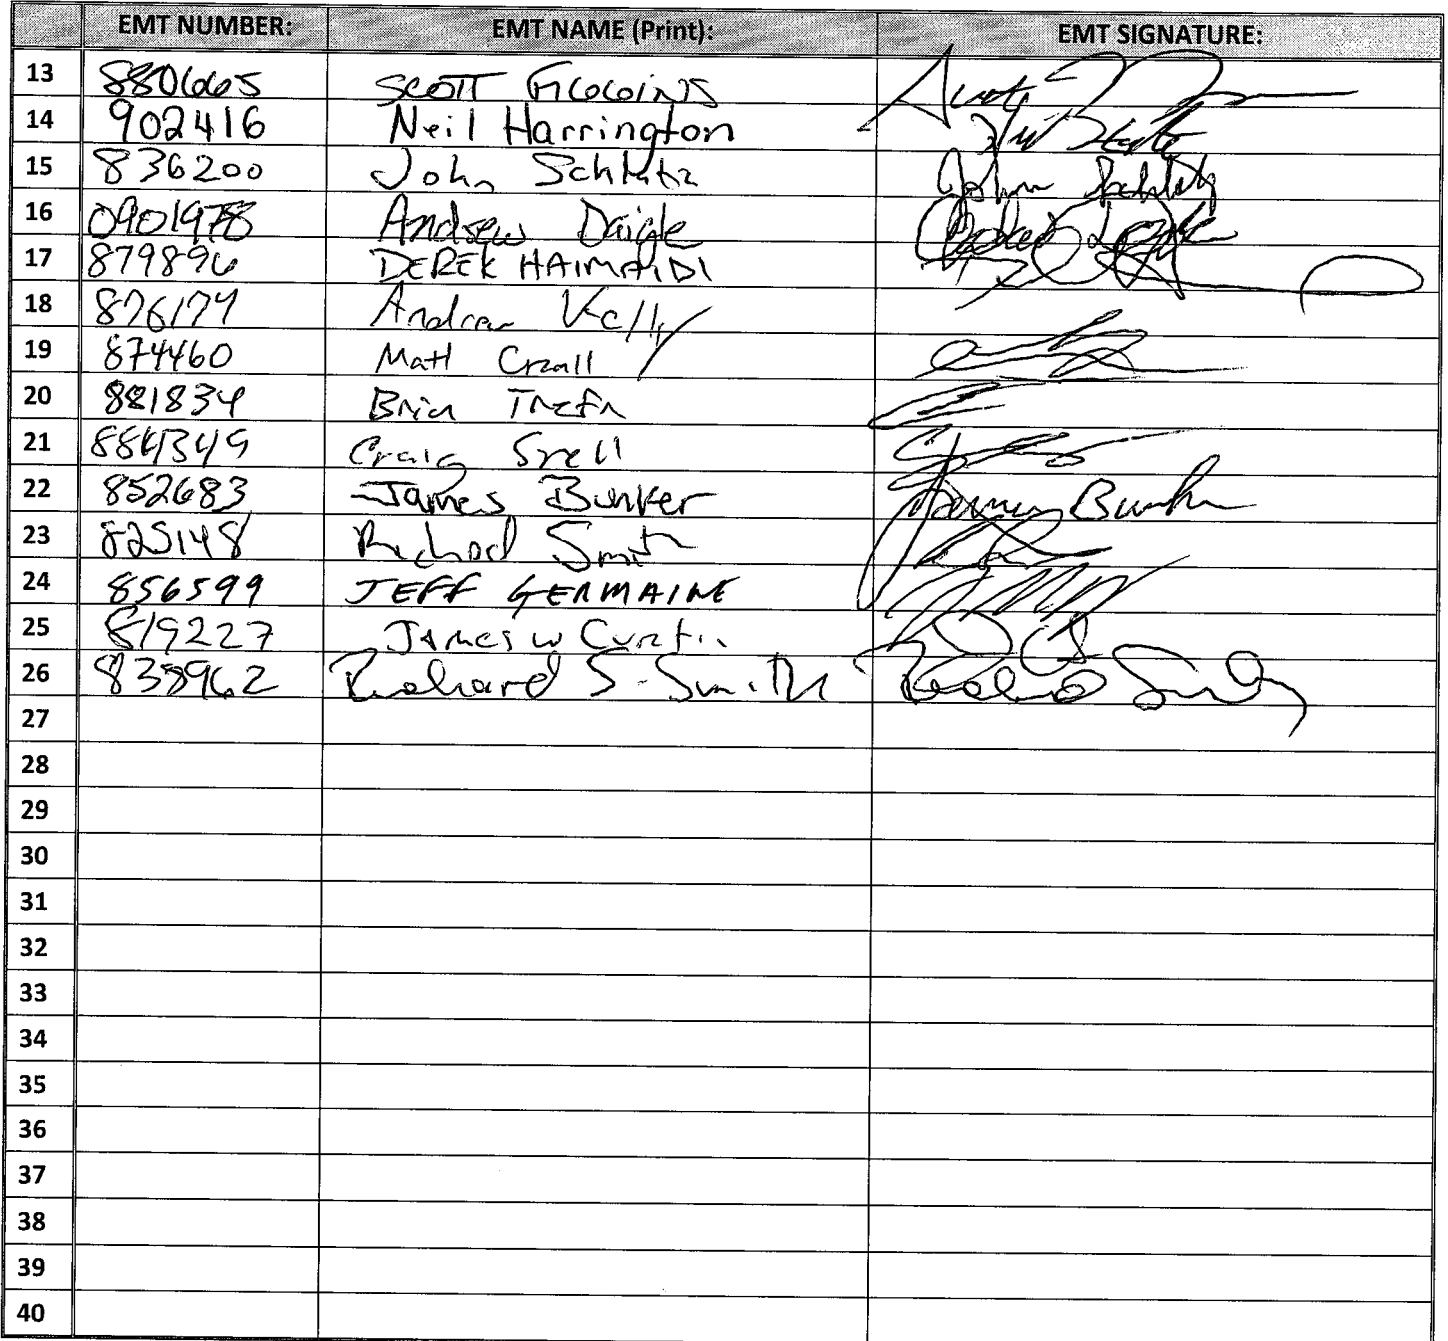 EMT NUMBER: EMT NAME (Print): EMT SIGNATURE:
13 880665 SCOTT
14 902416 Neil Harrington
15 836200 John Schlutz John
16 0901978 Andrew Daigle
17 879896 DEREK HAIMAIDI
18 876177 Andrew Kelly
19 874460 Matt
20 881834 Brian
21 884349 Craig Snell
22 852683 James Bunker James Bunker
23 825148 Richard Smith
24 856599 JEFF GERMAINE
25 819227 James W Curtin
26 838962 Richard S. Smith Richard Smith
27
28
29
30
31
32
33
34
35
36
37
38
39
40